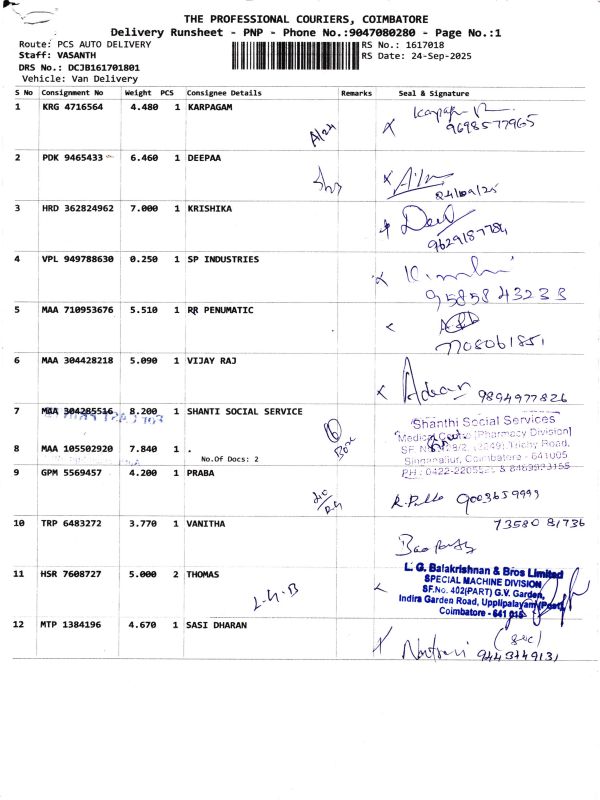 THE PROFESSIONAL COURIERS, COIMBATORE
Delivery Runsheet - PNP - Phone No.:9047080280 - Page No.:1
Route: PCS AUTO DELIVERY
RS No.: 1617018
Staff: VASANTH
RS Date: 24-Sep-2025
DRS No.: DCJB161701801
Vehicle: Van Delivery
S No Consignment No Weight PCS Consignee Details Remarks Seal & Signature
1 KRG 4716564 4.480 1 KARPAGAM
9698577965
2 PDK 9465433 6.460 1 DEEPAA
24/09/25
3 HRD 362824962 7.000 1 KRISHIKA
9629187784
4 VPL 949788630 0.250 1 SP INDUSTRIES
9585843233
5 MAA 710953676 5.510 1 RR PENUMATIC
7708061851
6 MAA 304428218 5.090 1 VIJAY RAJ
9894977826
7 MAA 304285516 8.200 1 SHANTI SOCIAL SERVICE
Shanthi Social Services
Medical Centre (Pharmacy Division)
8 MAA 105502920 7.840 1 .
Box
Trichy Road,
Singanallur, Coimbatore - 641005
No.Of Docs: 2
9 GPM 5569457 4.200 1 PRABA
9003659993
10 TRP 6483272 3.770 1 VANITHA
73580 81736
11 HSR 7608727 5.000 2 THOMAS
L.G.B
L. G. Balakrishnan & Bros Limited
SPECIAL MACHINE DIVISION
SF.No. 402(PART) G.V. Garden,
Indira Garden Road, Upplipalayam(Post)
Coimbatore - 641 015
12 MTP 1384196 4.670 1 SASI DHARAN
9443749131